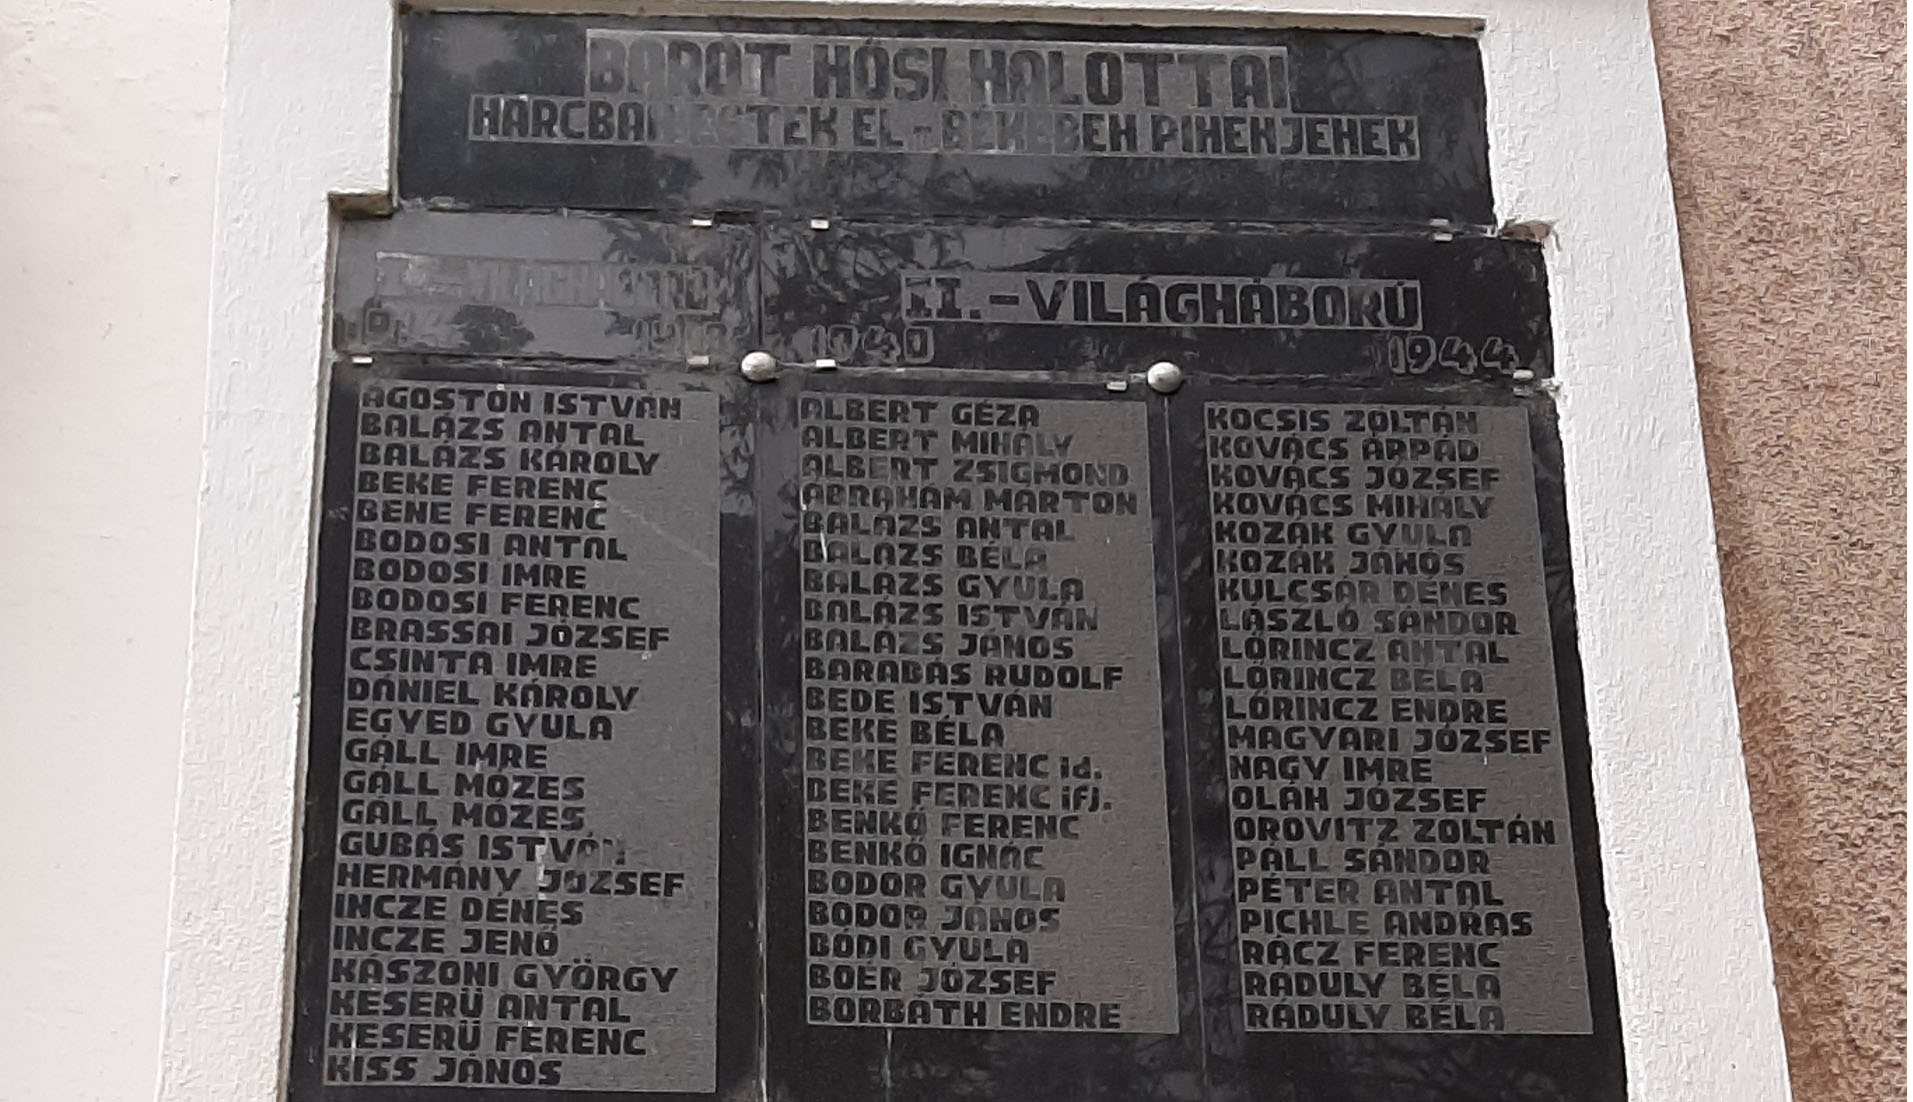 BARÓT HŐSI HALOTTAI
HARCBAN ESTEK EL - BÉKÉBEN PIHENJENEK
I. - VILÁGHÁBORÚ
II. - VILÁGHÁBORÚ
1940
1944
ÁGOSTON ISTVÁN
BALÁZS ANTAL
BALÁZS KÁROLY
BEKE FERENC
BENE FERENC
BODOSI ANTAL
BODOSI IMRE
BODOSI FERENC
BRASSAI JÓZSEF
CSINTA IMRE
DÁNIEL KÁROLY
EGYED GYULA
GÁLL IMRE
GÁLL MÓZES
GÁLL MÓZES
GUBÁS ISTVÁN
HERMÁNY JÓZSEF
INCZE DÉNES
INCZE JENŐ
KÁSZONI GYÖRGY
KESERÜ ANTAL
KESERÜ FERENC
KISS JÁNOS
ALBERT GÉZA
ALBERT MIHÁLY
ALBERT ZSIGMOND
ÁBRAHÁM MÁRTON
BALÁZS ANTAL
BALÁZS BÉLA
BALÁZS GYULA
BALÁZS ISTVÁN
BALÁZS JÁNOS
BARABÁS RUDOLF
BEDE ISTVÁN
BEKE BÉLA
BEKE FERENC id.
BEKE FERENC ifj.
BENKŐ FERENC
BENKŐ IGNÁC
BODOR GYULA
BODOR JÁNOS
BÓDI GYULA
BOÉR JÓZSEF
BORBÁTH ENDRE
KOCSIS ZOLTÁN
KOVÁCS ÁRPÁD
KOVÁCS JÓZSEF
KOVÁCS MIHÁLY
KOZÁK GYULA
KOZÁK JÁNOS
KULCSÁR DÉNES
LÁSZLÓ SÁNDOR
LŐRINCZ ANTAL
LŐRINCZ BÉLA
LŐRINCZ ENDRE
MAGYARI JÓZSEF
NAGY IMRE
OLÁH JÓZSEF
OROVITZ ZOLTÁN
PÁLL SÁNDOR
PÉTER ANTAL
PICHLE ANDRÁS
RÁCZ FERENC
RÁDULY BÉLA
RÁDULY BÉLA